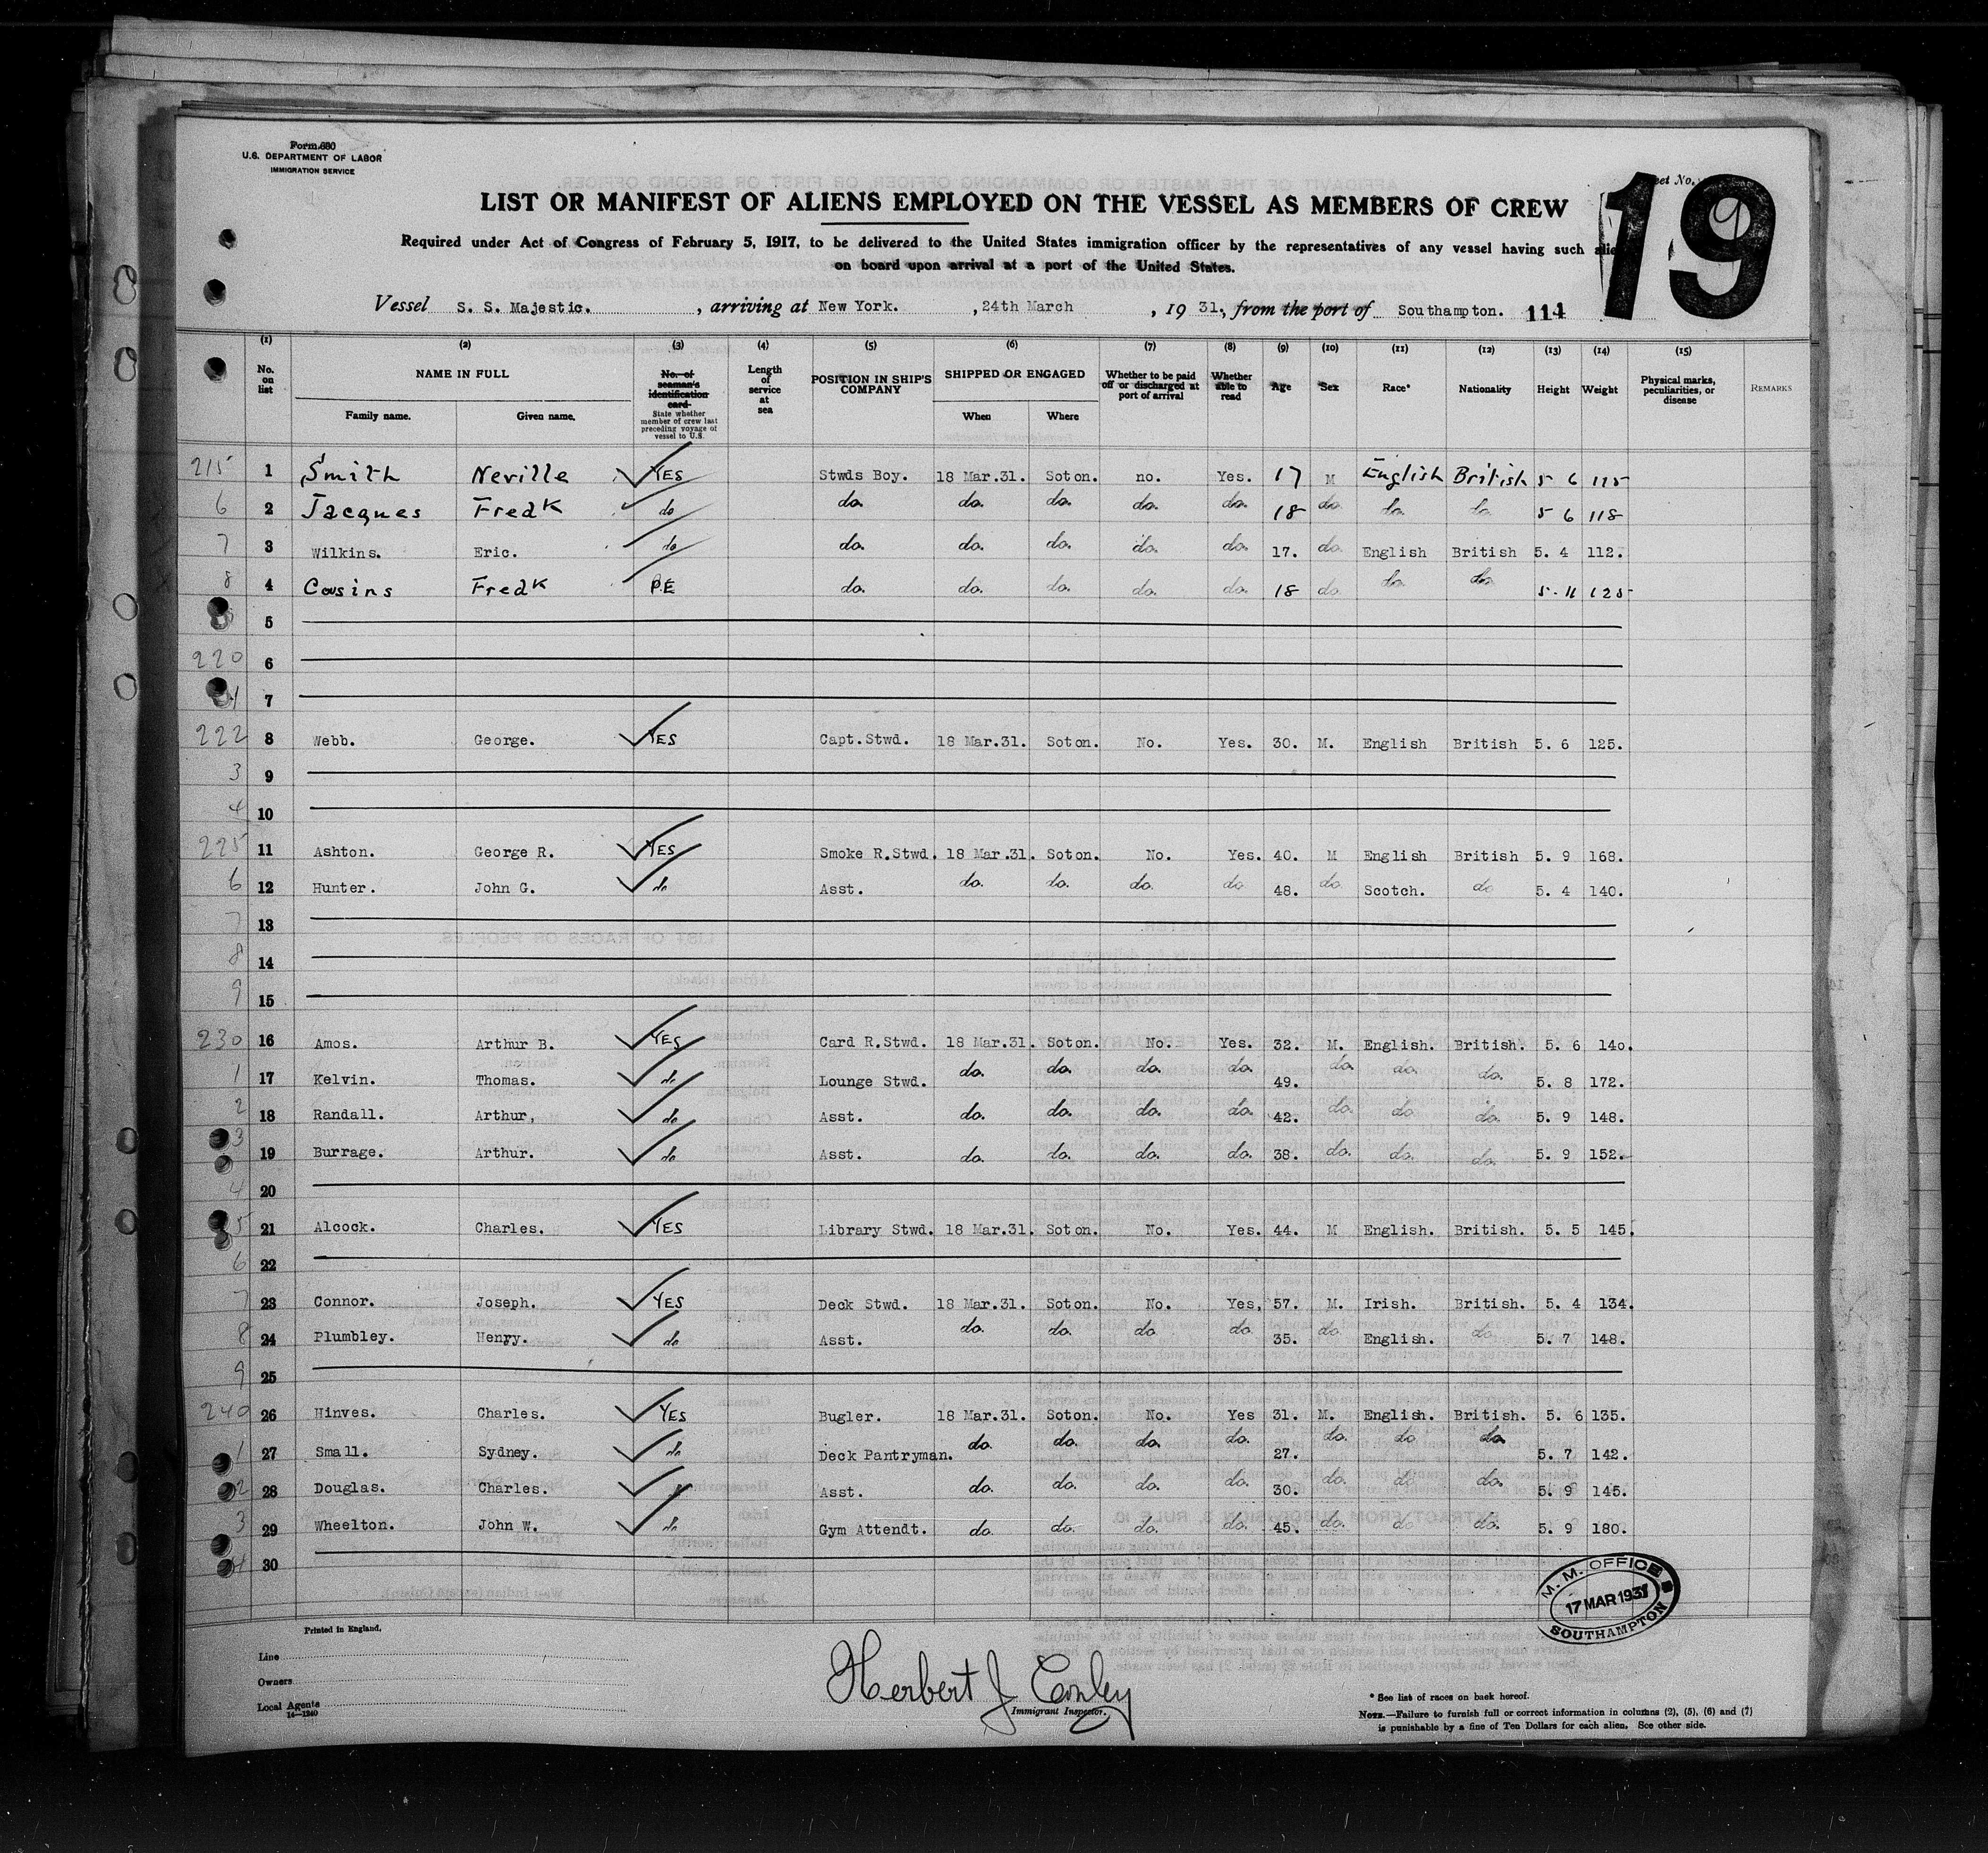 Form 680
U.S. DEPARTMENT OF LABOR
IMMIGRATION SERVICE
eet No.
9
19
LIST OR MANIFEST OF ALIENS EMPLOYED ON THE VESSEL AS MEMBERS OF CREW
Required under Act of Congress of February 5, 1917, to be delivered to the United States immigration officer by the representatives of any vessel having such alie
on board upon arrival at a port of the United States.
Vessel S. S. Majestic. , arriving at New York. , 24th March , 19 31, from the port of Southampton. 114
(1) (2) (3) (4) (5) (6) (7) (8) (9) (10) (11) (12) (13) (14) (15)
No. on list NAME IN FULL Family name. Given name. No. of seaman's identification card State whether member of crew last preceding voyage of vessel to U.S. Length of service at sea POSITION IN SHIP'S COMPANY SHIPPED OR ENGAGED When Where Whether to be paid off or discharged at port of arrival Whether able to read Age Sex Race* Nationality Height Weight Physical marks, peculiarities, or disease REMARKS
215 1 Smith Neville YES Stwds Boy. 18 Mar.31. Soton. no. Yes. 17 M English British 5 6 115
6 2 Jacques Fredk do do. do. do. do. do. 18 do do. do. 5 6 118
7 3 Wilkins. Eric. do do. do. do. do. do. 17. do. English British 5. 4 112.
8 4 Cousins Fredk P.E do. do. do. do. do. 18 do. do. do. 5.11 125
5
220 6
1 7
222 8 Webb. George. YES Capt.Stwd. 18 Mar.31. Soton. No. Yes. 30. M. English British 5. 6 125.
3 9
4 10
225 11 Ashton. George R. YES Smoke R.Stwd. 18 Mar.31. Soton. No. Yes. 40. M English British 5. 9 168.
6 12 Hunter. John G. do Asst. do. do. do. do 48. do Scotch. do 5. 4 140.
7 13
8 14
9 15
230 16 Amos. Arthur B. YES Card R.Stwd. 18 Mar.31. Soton. No. Yes. 32. M. English. British. 5. 6 140.
1 17 Kelvin. Thomas. do Lounge Stwd. do. do. do. do. 49. do. do. do. 5. 8 172.
2 18 Randall. Arthur, do Asst. do. do. do. do. 42. do. do. do. 5. 9 148.
3 19 Burrage. Arthur. do Asst. do. do. do. do. 38. do. do. do. 5. 9 152.
4 20
5 21 Alcock. Charles. YES Library Stwd. 18 Mar.31. Soton. No. Yes. 44. M English. British. 5. 5 145.
6 22
7 23 Connor. Joseph. YES Deck Stwd. 18 Mar.31. Soton. No. Yes, 57. M. Irish. British. 5. 4 134.
8 24 Plumbley. Henry. do Asst. do. do. do do 35. do. English. do 5. 7 148.
9 25
240 26 Hinves. Charles. YES Bugler. 18 Mar.31. Soton. No. Yes 31. M. English. British. 5. 6 135.
1 27 Small. Sydney. do Deck Pantryman. do. do. do. do. 27. do. do do 5. 7 142.
2 28 Douglas. Charles. Asst. do. do. do. do. 30. do. do do. 5. 9 145.
3 29 Wheelton. John W. do Gym Attendt. do. do. do. do. 45. do. do do. 5. 9 180.
4 30
M. M. OFFICE
17 MAR 1931
SOUTHAMPTON
Printed in England.
Line
Owners
Local Agents
14—1240
Herbert J Conley
Immigrant Inspector.
* See list of races on back hereof.
NOTE.—Failure to furnish full or correct information in columns (2), (5), (6) and (7)
is punishable by a fine of Ten Dollars for each alien. See other side.